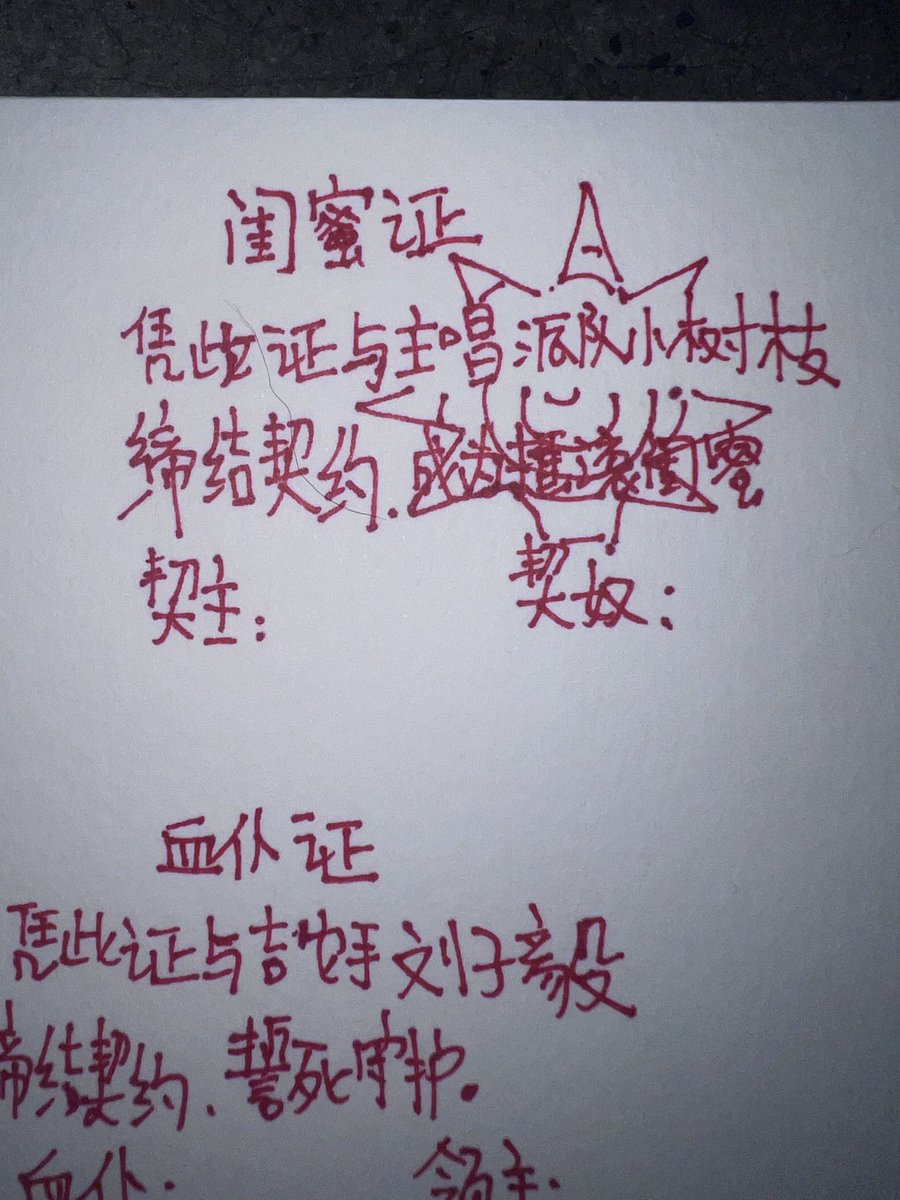 闺蜜证
凭此证与主唱派队小树枝
缔结契约.成为摇滚闺蜜
契主: 契奴:
血仆证
凭此证与吉他手刘子毅
缔结契约.誓死守护.
血仆: 领主: